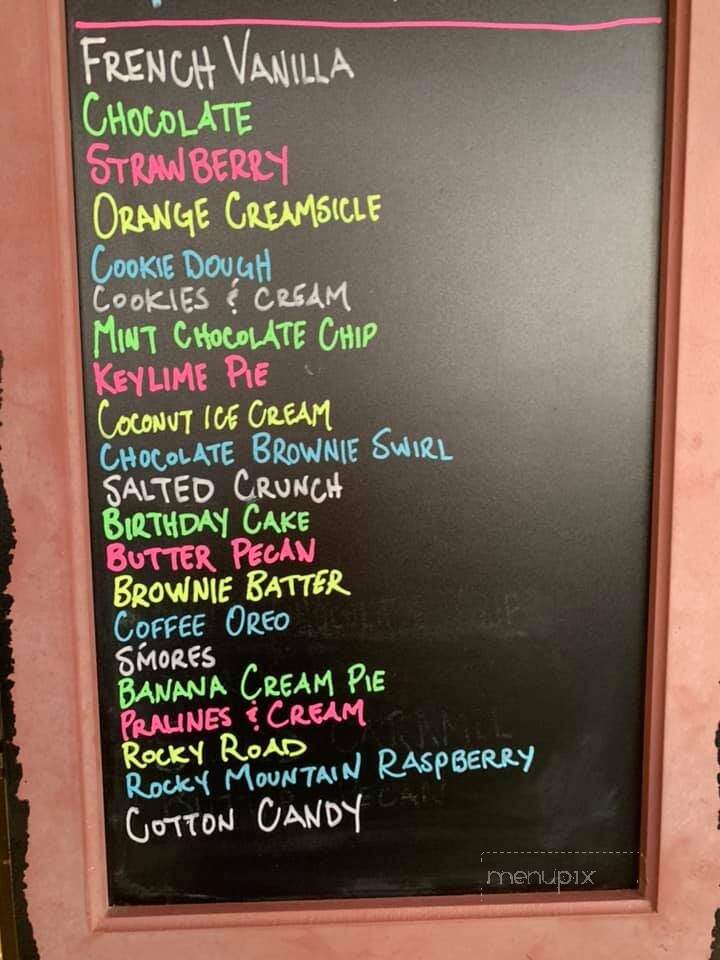 FRENCH VANILLA
CHOCOLATE
STRAWBERRY
ORANGE CREAMSICLE
COOKIE DOUGH
COOKIES & CREAM
MINT CHOCOLATE CHIP
KEYLIME PIE
COCONUT ICE CREAM
CHOCOLATE BROWNIE SWIRL
SALTED CRUNCH
BIRTHDAY CAKE
BUTTER PECAN
BROWNIE BATTER
COFFEE OREO
S'MORES
BANANA CREAM PIE
PRALINES & CREAM
ROCKY ROAD
ROCKY MOUNTAIN RASPBERRY
COTTON CANDY
menupix